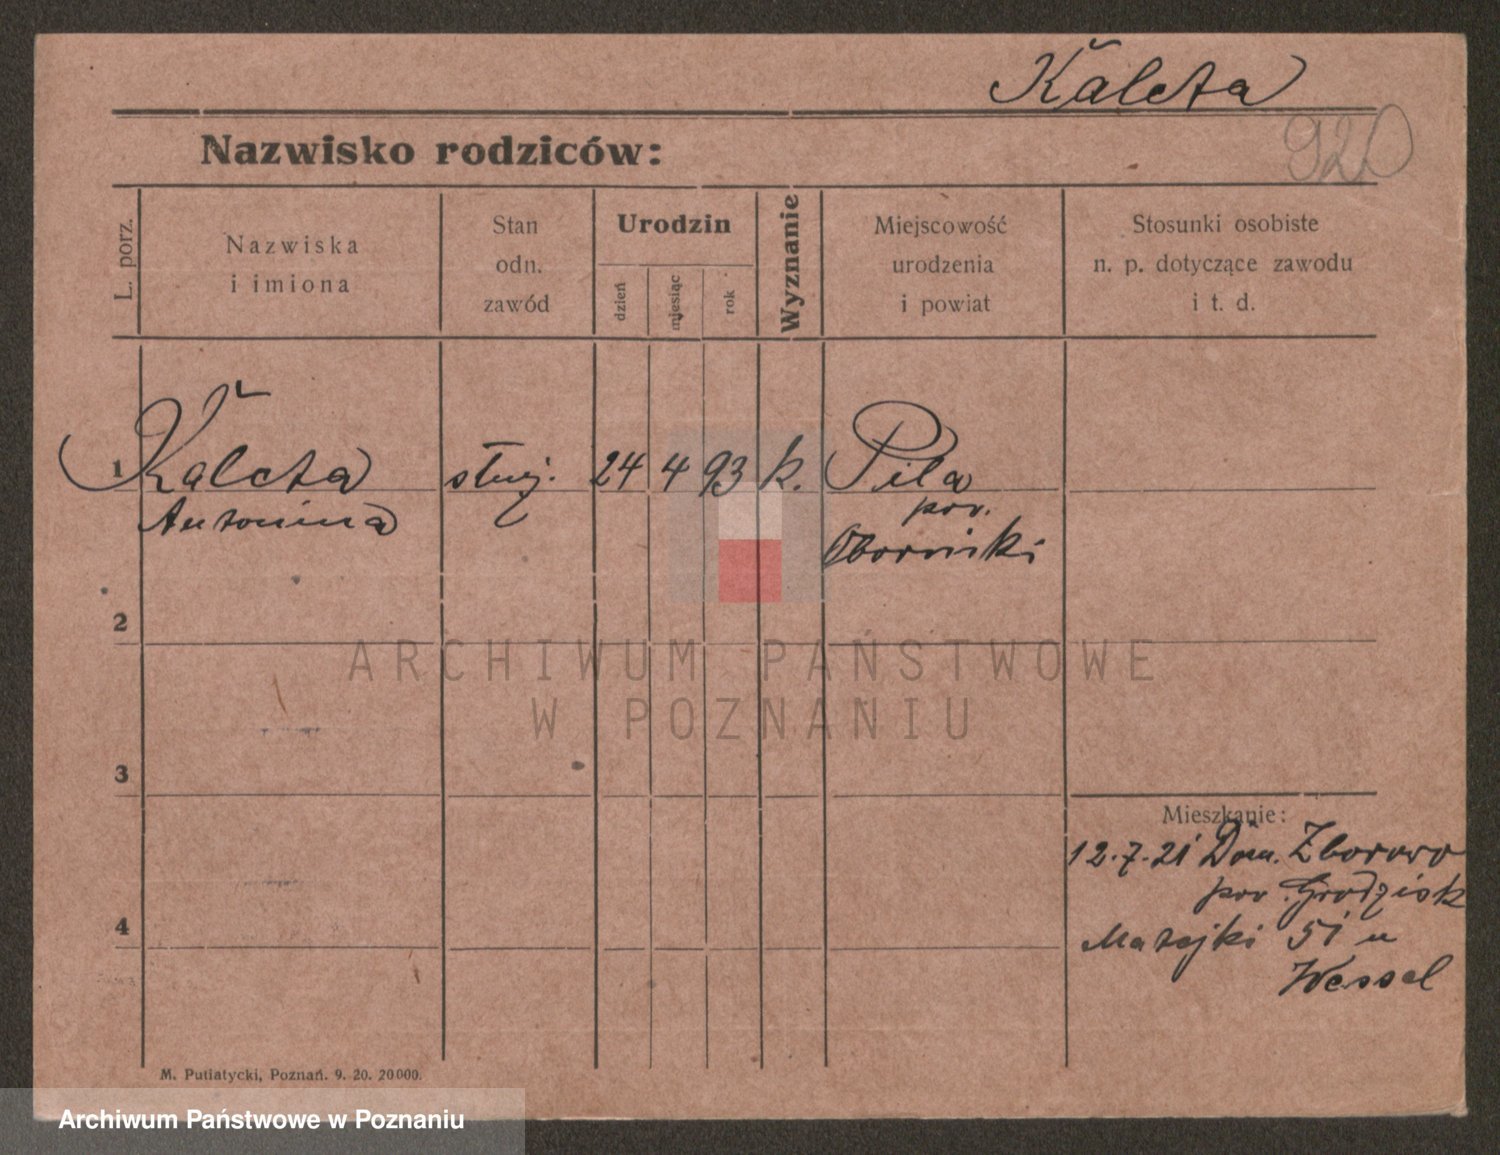 Kaleta
920
Nazwisko rodziców:
L. porz.
Nazwiska
i imiona
Stan
odn.
zawód
Urodzin
dzień
miesiąc
rok
Wyznanie
Miejscowość
urodzenia
i powiat
Stosunki osobiste
n. p. dotyczące zawodu
i t. d.
1 Kaleta służ. 24 4 93 k. Piła
Antonina pow.
Obornicki
2
ARCHIWUM PAŃSTWOWE
W POZNANIU
3
Mieszkanie:
12.7.21 Dom. Zborowo
pow. Grodzisk
4
Matejki 51 u
Wessel
M. Putiatycki, Poznań. 9. 20. 20000.
Archiwum Państwowe w Poznaniu